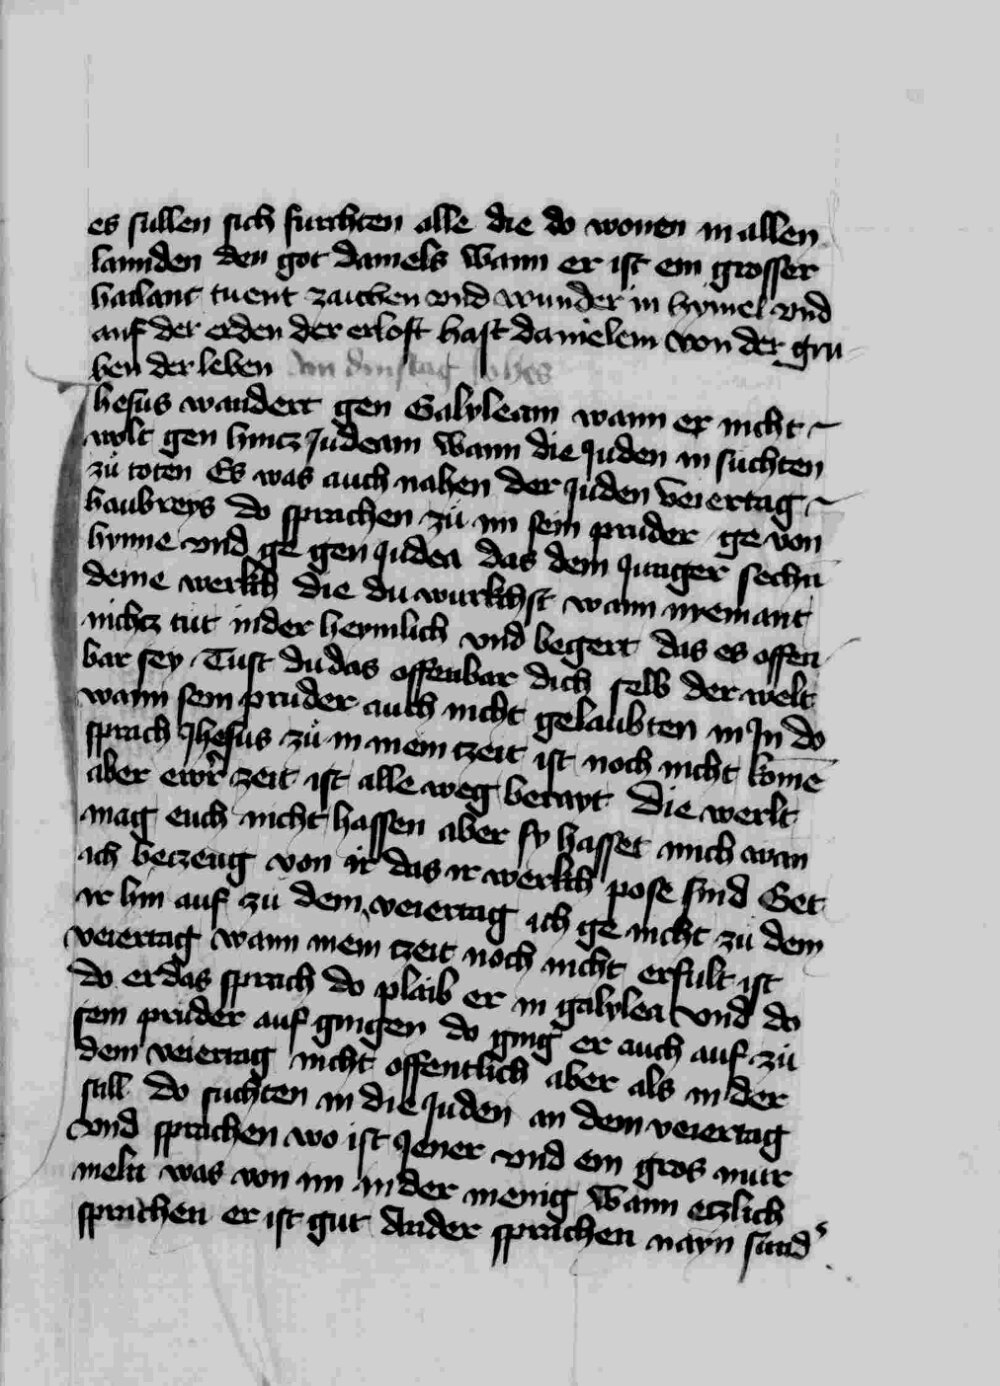 es sullen sich furchten alle die do wonen in allen
lannden den got daniels Wann er ist ein grosser
hailant tuent zaichen vnd wunder in hymel vnd
auf der erden der erlost hast danielem von der gru
ben der leben Am dinstag Johes
Jhesus wandert gen Galyleam wann er nicht
wolt gen hincz Judeam Wann die Juden in suchten
zů toten Es was auch nahen der Juden veiertag
haubreys do sprachen zů im sein pruder ge von
hynne vnd ge gen Judea das dein Junger sechn̄
deine werkch die du wurkchst wann nyemant
nichcz tut in der heymlich vnd begert das es offen
bar sey Tust du das offenbar dich selb der welt
wann sein pruder auch nicht gelaubten in In do
sprach Jhesus zů in mein czeit ist noch nicht komē
aber ewr̄ zeit ist alle weg berayt die werlt
mag euch nicht hassen aber sy hasset mich wan
ich beczeug von ir das ir werkch pose sind Get
ir hin auf zu dem veiertag ich ge nicht zu dem
veiertag wann mein czeit noch nicht erfult ist
do er das sprach do plaib er in galylea vnd do
sein pruder auf gingen do ging er auch auf zů
dem veiertag nicht offentlich aber als in der
still do suchten in die Juden an dem veiertag
vnd sprachen wo ist Jener vnd ein gros mur
meln was von im in der menig Wann etzlich
sprachen er ist gut Ander sprachen nayn sund̕